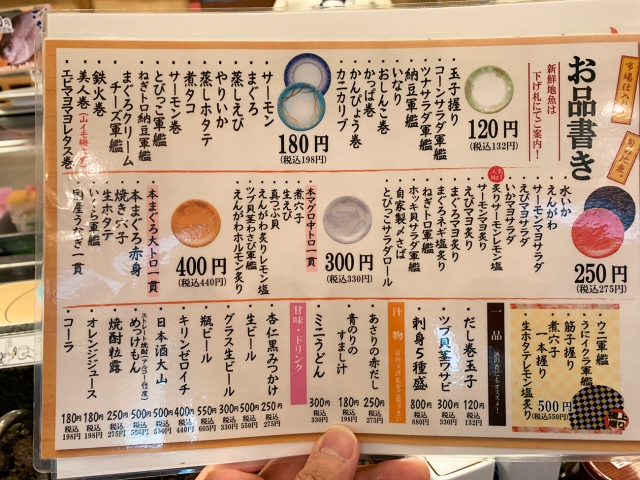 市場仕入
旬
地魚
お品書き
新鮮地魚は
下げ札にてご案内！
120円
(税込132円)
玉子握り
コーンサラダ軍艦
ツナサラダ軍艦
納豆軍艦
いなり
おしんこ巻
かっぱ巻
かんぴょう巻
カニカリブ
180円
(税込198円)
サーモン
まぐろ
蒸しえび
やりいか
蒸しホタテ
煮タコ
サーモン巻
とびっこ軍艦
ねぎトロ納豆軍艦
まぐろクリーム
チーズ軍艦
鉄火巻
美人巻
エビマヨマヨレタス巻
250円
(税込275円)
水いか
えんがわ
サーモンマヨサラダ
えびマヨサラダ
いかマヨサラダ
人気No.1
炙りサーモンレモン塩
サーモンマヨ炙り
えびマヨ炙り
まぐろマヨ炙り
まぐろネギ塩炙り
ねぎトロ軍艦
ホッキ貝サラダ軍艦
自家製〆さば
とびっこサラダロール
300円
(税込330円)
本マグロ中トロ一貫
煮穴子
生えび
真つぶ貝
えんがわ炙りレモン塩
ツブ貝茎わさび軍艦
えんがわホルモン炙り
400円
(税込440円)
本まぐろ大トロ一貫
本まぐろ赤身
焼き穴子
生ホタテ
いくら軍艦
国産うなぎ一貫
ウニ軍艦
うにイクラ軍艦
筋子握り
煮穴子
一本握り
生ホタテレモン塩炙り
500円
(税込550円)
一品
酒の肴にもオススメ！
だし巻玉子
120円
税込
132円
ツブ貝茎ワサビ
300円
税込
330円
刺身5種盛
800円
税込
880円
汁物
あさりの赤だし
250円
税込
275円
青のりの
すまし汁
180円
税込
198円
ミニうどん
300円
税込
330円
甘味・ドリンク
杏仁黒みつかけ
250円
税込
275円
生ビール
500円
税込
550円
グラス生ビール
300円
税込
330円
瓶ビール
550円
税込
605円
キリンゼロイチ
400円
税込
440円
日本酒大山
500円
税込
550円
めっけもん
500円
税込
550円
焼酎粒露
250円
税込
275円
オレンジジュース
180円
税込
198円
コーラ
180円
税込
198円